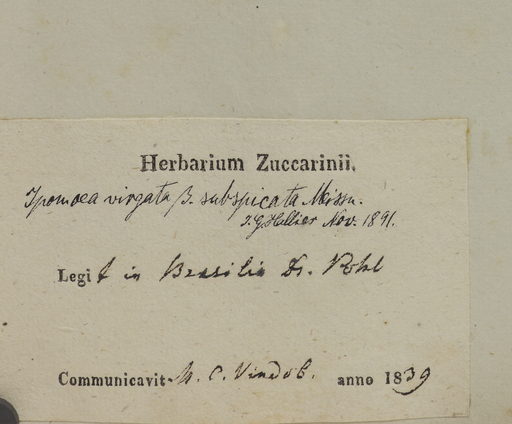 Herbarium Zuccarinii.
Ipomoea virgata β. subspicata Meissn.
J. G. Hallier Nov. 1891.
Legit in Brasilia Dr. Pohl
Communicavit M. C. Vindob. anno 1839